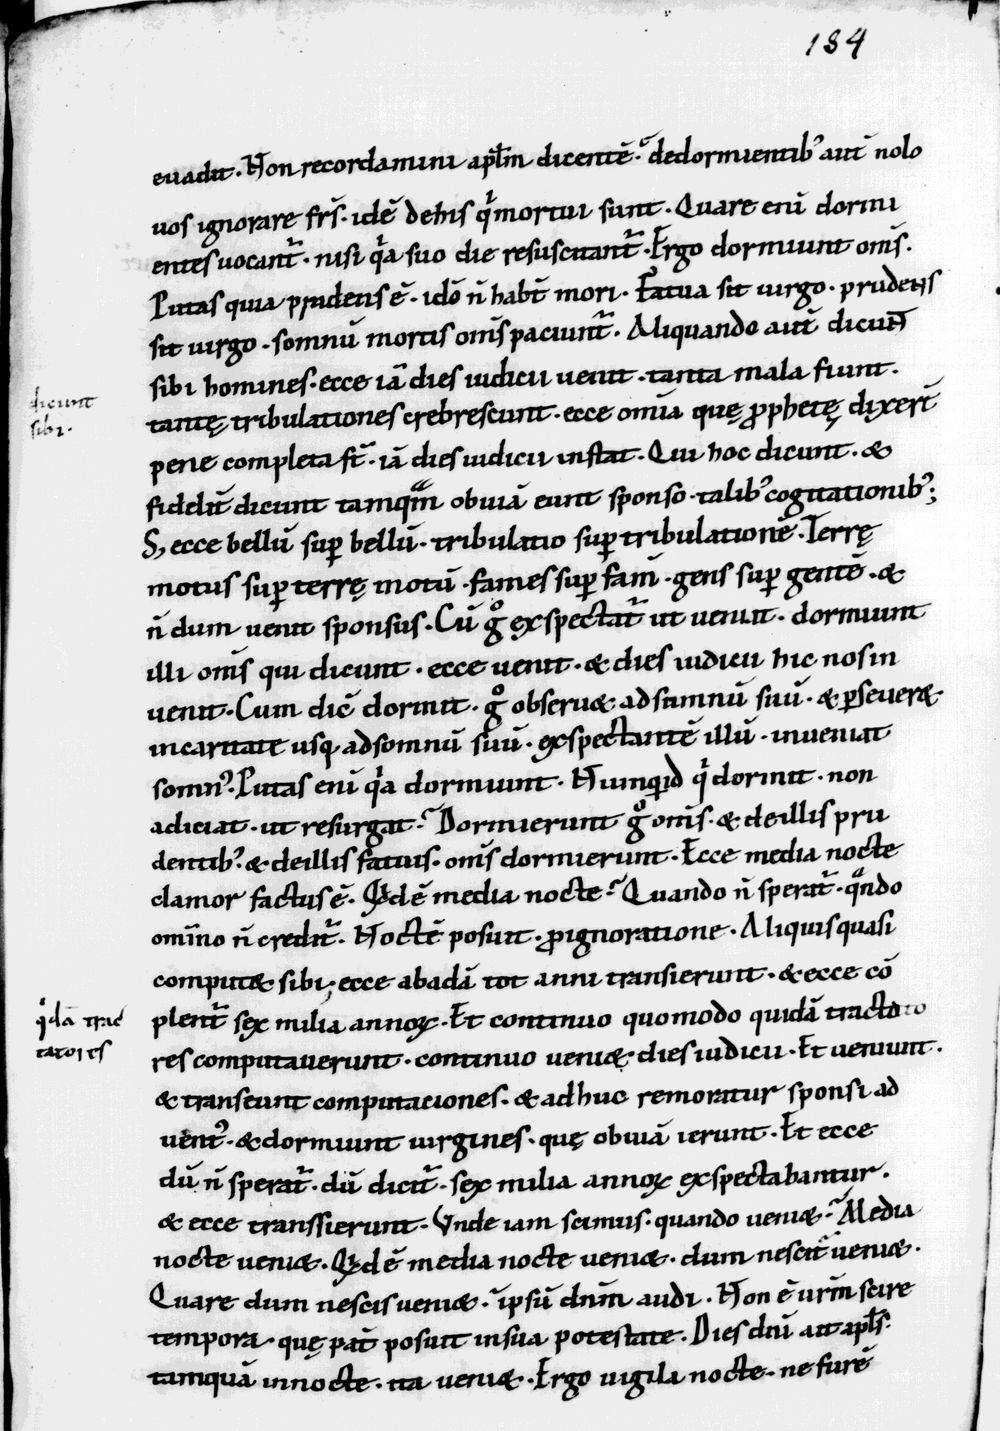 134
euadit. Non recordamini aplm̄ dicentē. dedormientib᾽ aut̄ nolo
uos ignorare frs̄. idē dehis qͥ mortui sunt. Quare enī dormi
entes uocant᷑. nisi qͥa suo die resuscitant᷑. Ergo dormiunt om̄s.
Putas quia prudens ē. idō n̄ habt̄ mori. Fatua sit uirgo. prudens
sit uirgo. somnū mortis om̄s paciunt᷑. Aliquando aut̄ dicun̄t
sibi homines. ecce iā dies iudicii uenit. tanta mala fiunt.
dicunt
sibi.
tantę tribulationes crebrescunt. ecce om̄ia quę ꝓphetę dixer̄t
pene completa ft̄. iā dies iudicii instat. Qui hoc dicunt. &
fidelit᷑ dicunt tamqᷓm obuiā eunt sponso talib᾽ cogitationib᾽;
S; ecce bellū suꝑ bellū. tribulatio suꝑ tribulationē. Terrę
motus suꝑ terrę motū. fames suꝑ fam̄. gens suꝑ gentē. &
n̄ dum uenit sponsus. Cū gͦ exspectat᷑ ut ueniat. dormiunt
illi om̄s qui dicunt. ecce uenit. & dies iudicii hic nos in
uenit. Cum dic̄ dormit. gͦ obseru& ad somnū suū. & ꝑseuer&
incaritate usq; adsomnū suū. exspectantē illū. inueniat
somn᾽. Putas enī qͥa dormiunt. Numquid qͥ dormit. non
adiciat. ut resurgat. Dormierunt gͦ om̄s. & deillis pru
dentib᾽. & deillis fatuis. om̄s dormierunt. Ecce media nocte
clamor factus ē. Qd̄ ē media nocte. Quando n̄ sperat᷑. qᷓndo
om̄ino n̄ credit᷑. Noctē posuit. ꝓignoratione. Aliquis quasi
comput& sibi; ecce abadā tot anni transierunt. & ecce cō
plent᷑ sex milia annoꝝ. Et continuo quomodo quidā tracta
qͥdā trac
tatores
res computauerunt. continuo ueni& dies iudicii. Et ueniunt.
& transeunt computaciones. & adhuc remoratur sponsi ad
uent᾽. & dormiunt uirgines. quę obuiā ierunt. Et ecce
dū n̄ sperat᷑. dū dicit᷑. sex milia annoꝝ exspectabantur.
& ecce transsierunt. Vnde iam scimus. quando ueni&. Media
nocte ueni&. Qd̄ ē media nocte ueni&. dum nescit᷑ ueni&.
Quare dum nescis ueni&. ipsū dn̄m audi. Non ē ur̄m scire
tempora. quę pat᷑ posuit insua potestate. Dies dn̄i ait apl̄s.
tamquā innocte. ita ueni&. Ergo uigila nocte. ne furē